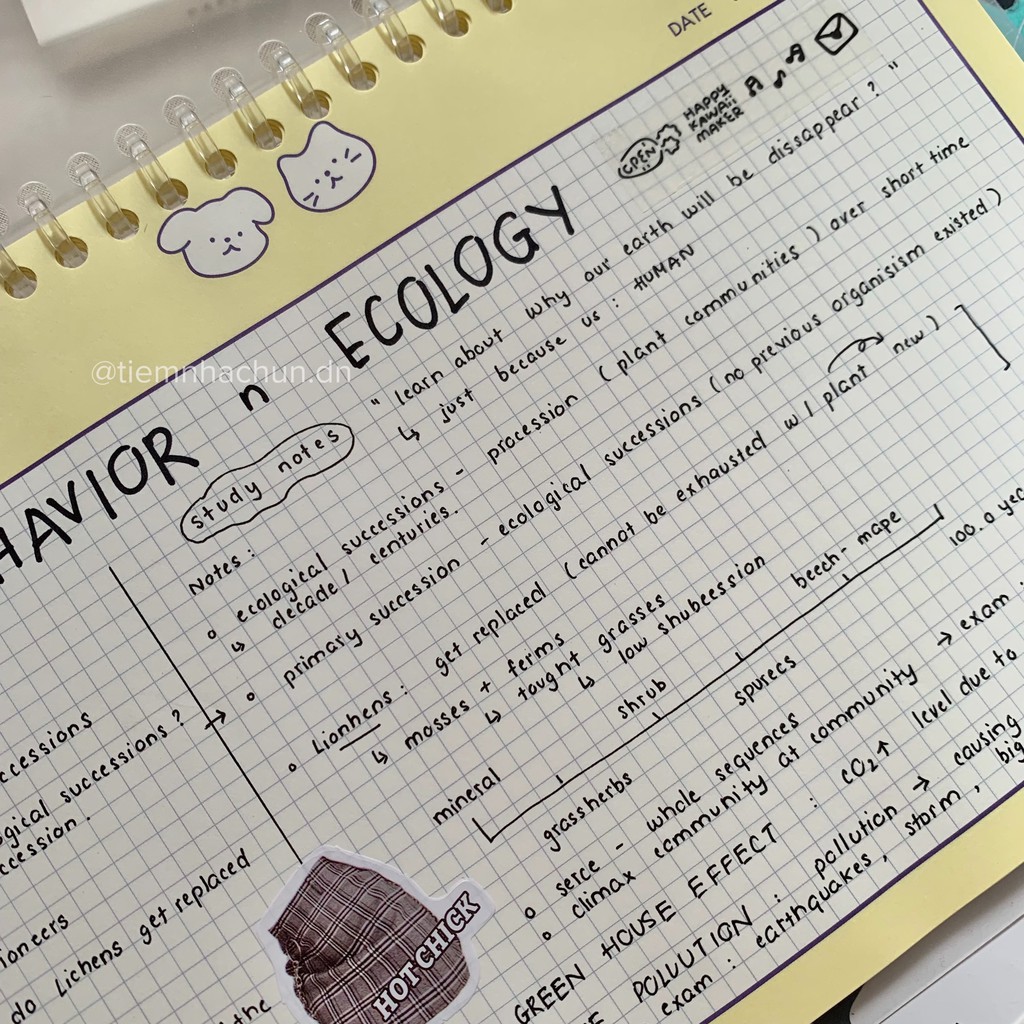 DATE
OPEN
HAPPY
KAWAii
MAKER
HAVIOR n ECOLOGY
@tiemnhachun.dn
study notes
" learn about why our earth will be dissappear ? "
↳ just because us : HUMAN
Notes :
ecological successions - procession ( plant communities ) over short time
↳ decade / centuries.
primary succession - ecological successions ( no previous organisism existed )
Lionhens : get replaced ( cannot be exhausted w / plant new )
↳ mosses + ferms
↳ taught grasses
↳ low shubeession
mineral
grassherbs
shrub
spurecs
beech - mape
100. a yea
serce - whole sequences
climax community at community → exam
GREEN HOUSE EFFECT : CO2↑ level due to
POLLUTION : pollution → causing
exam : earthquakes, storm, big
ccessions
ogical successions ?
ccession.
ioneers
do Lichens get replaced
the
HOT CHICK